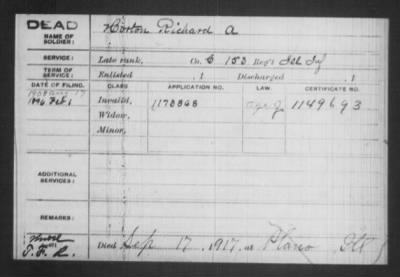 DEAD
NAME OF SOLDIER: Horton Richard A
SERVICE: Late rank, Co. G 153 Reg't Ill Inf
TERM OF SERVICE: Enlisted , 1 Discharged , 1
DATE OF FILING. CLASS APPLICATION NO. LAW. CERTIFICATE NO.
1896 Feb 1 Invalid, 1178868 1149693
Widow,
Minor,
ADDITIONAL SERVICES:
REMARKS:
Died Sep 17, 1917, at Plano Ill